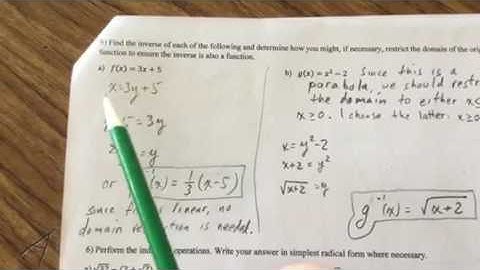 5) Find the inverse of each of the following and determine how you might, if necessary, restrict the domain of the orig
function to ensure the inverse is also a function.
a) f(x) = 3x + 5
x=3y+5
5 = 3y
= y
or (x) = 1/3 (x-5)
since linear, no
domain is needed.
b) g(x) = x² − 2 Since this is a
parabola, we should restri
the domain to either x≤
x≥0. I choose the latter: x≥0
x=y²-2
x+2=y²
√x+2 = y
g⁻¹(x) = √x+2
6) Perform the operations. Write your answer in simplest radical form where necessary.